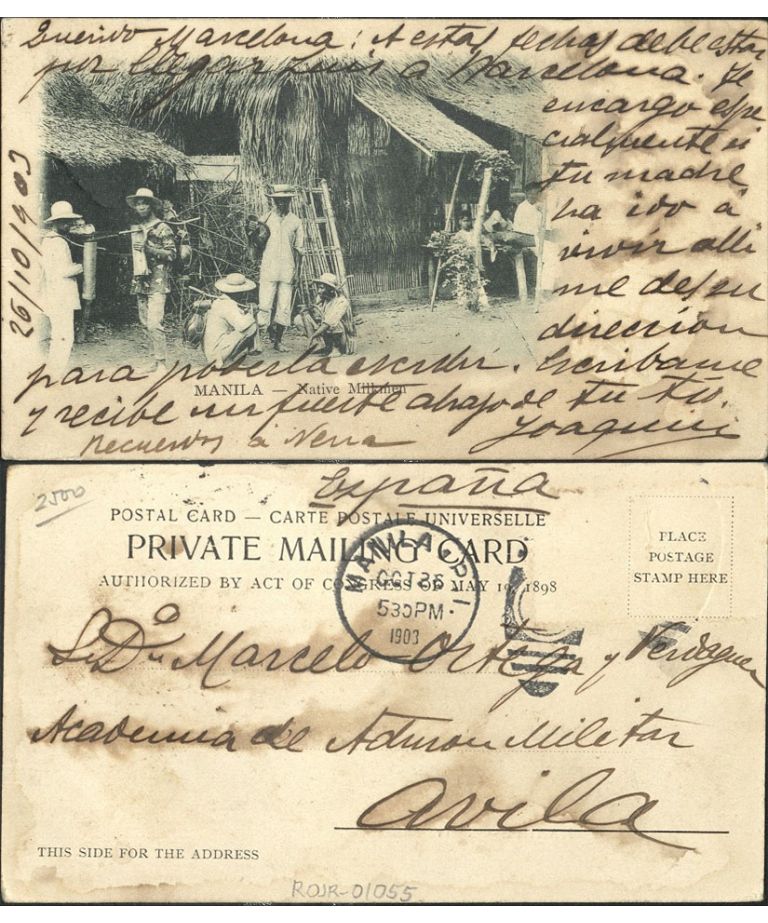 Querido Marcelona: A estas fechas debe estar
por llegar Luis a Barcelona. Te
encargo espe
cialmente si
tu madre
ha ido á
vivir alli
me des su
direccion
para poderla escribir. Escribame
y recibe un fuerte abrazo de tu tio.
Joaquin
Recuerdos á Nena
26/10/903
MANILA — Native Milkmen
2500
España
POSTAL CARD — CARTE POSTALE UNIVERSELLE
PRIVATE MAILING CARD
AUTHORIZED BY ACT OF CONGRESS OF MAY 19, 1898
PLACE
POSTAGE
STAMP HERE
MANILA P.I.
OCT 26
530PM
1903
Sr Dn Marcelo Ortega y Verdaguer
Academia de Admon Militar
Avila
THIS SIDE FOR THE ADDRESS
ROJR-01055